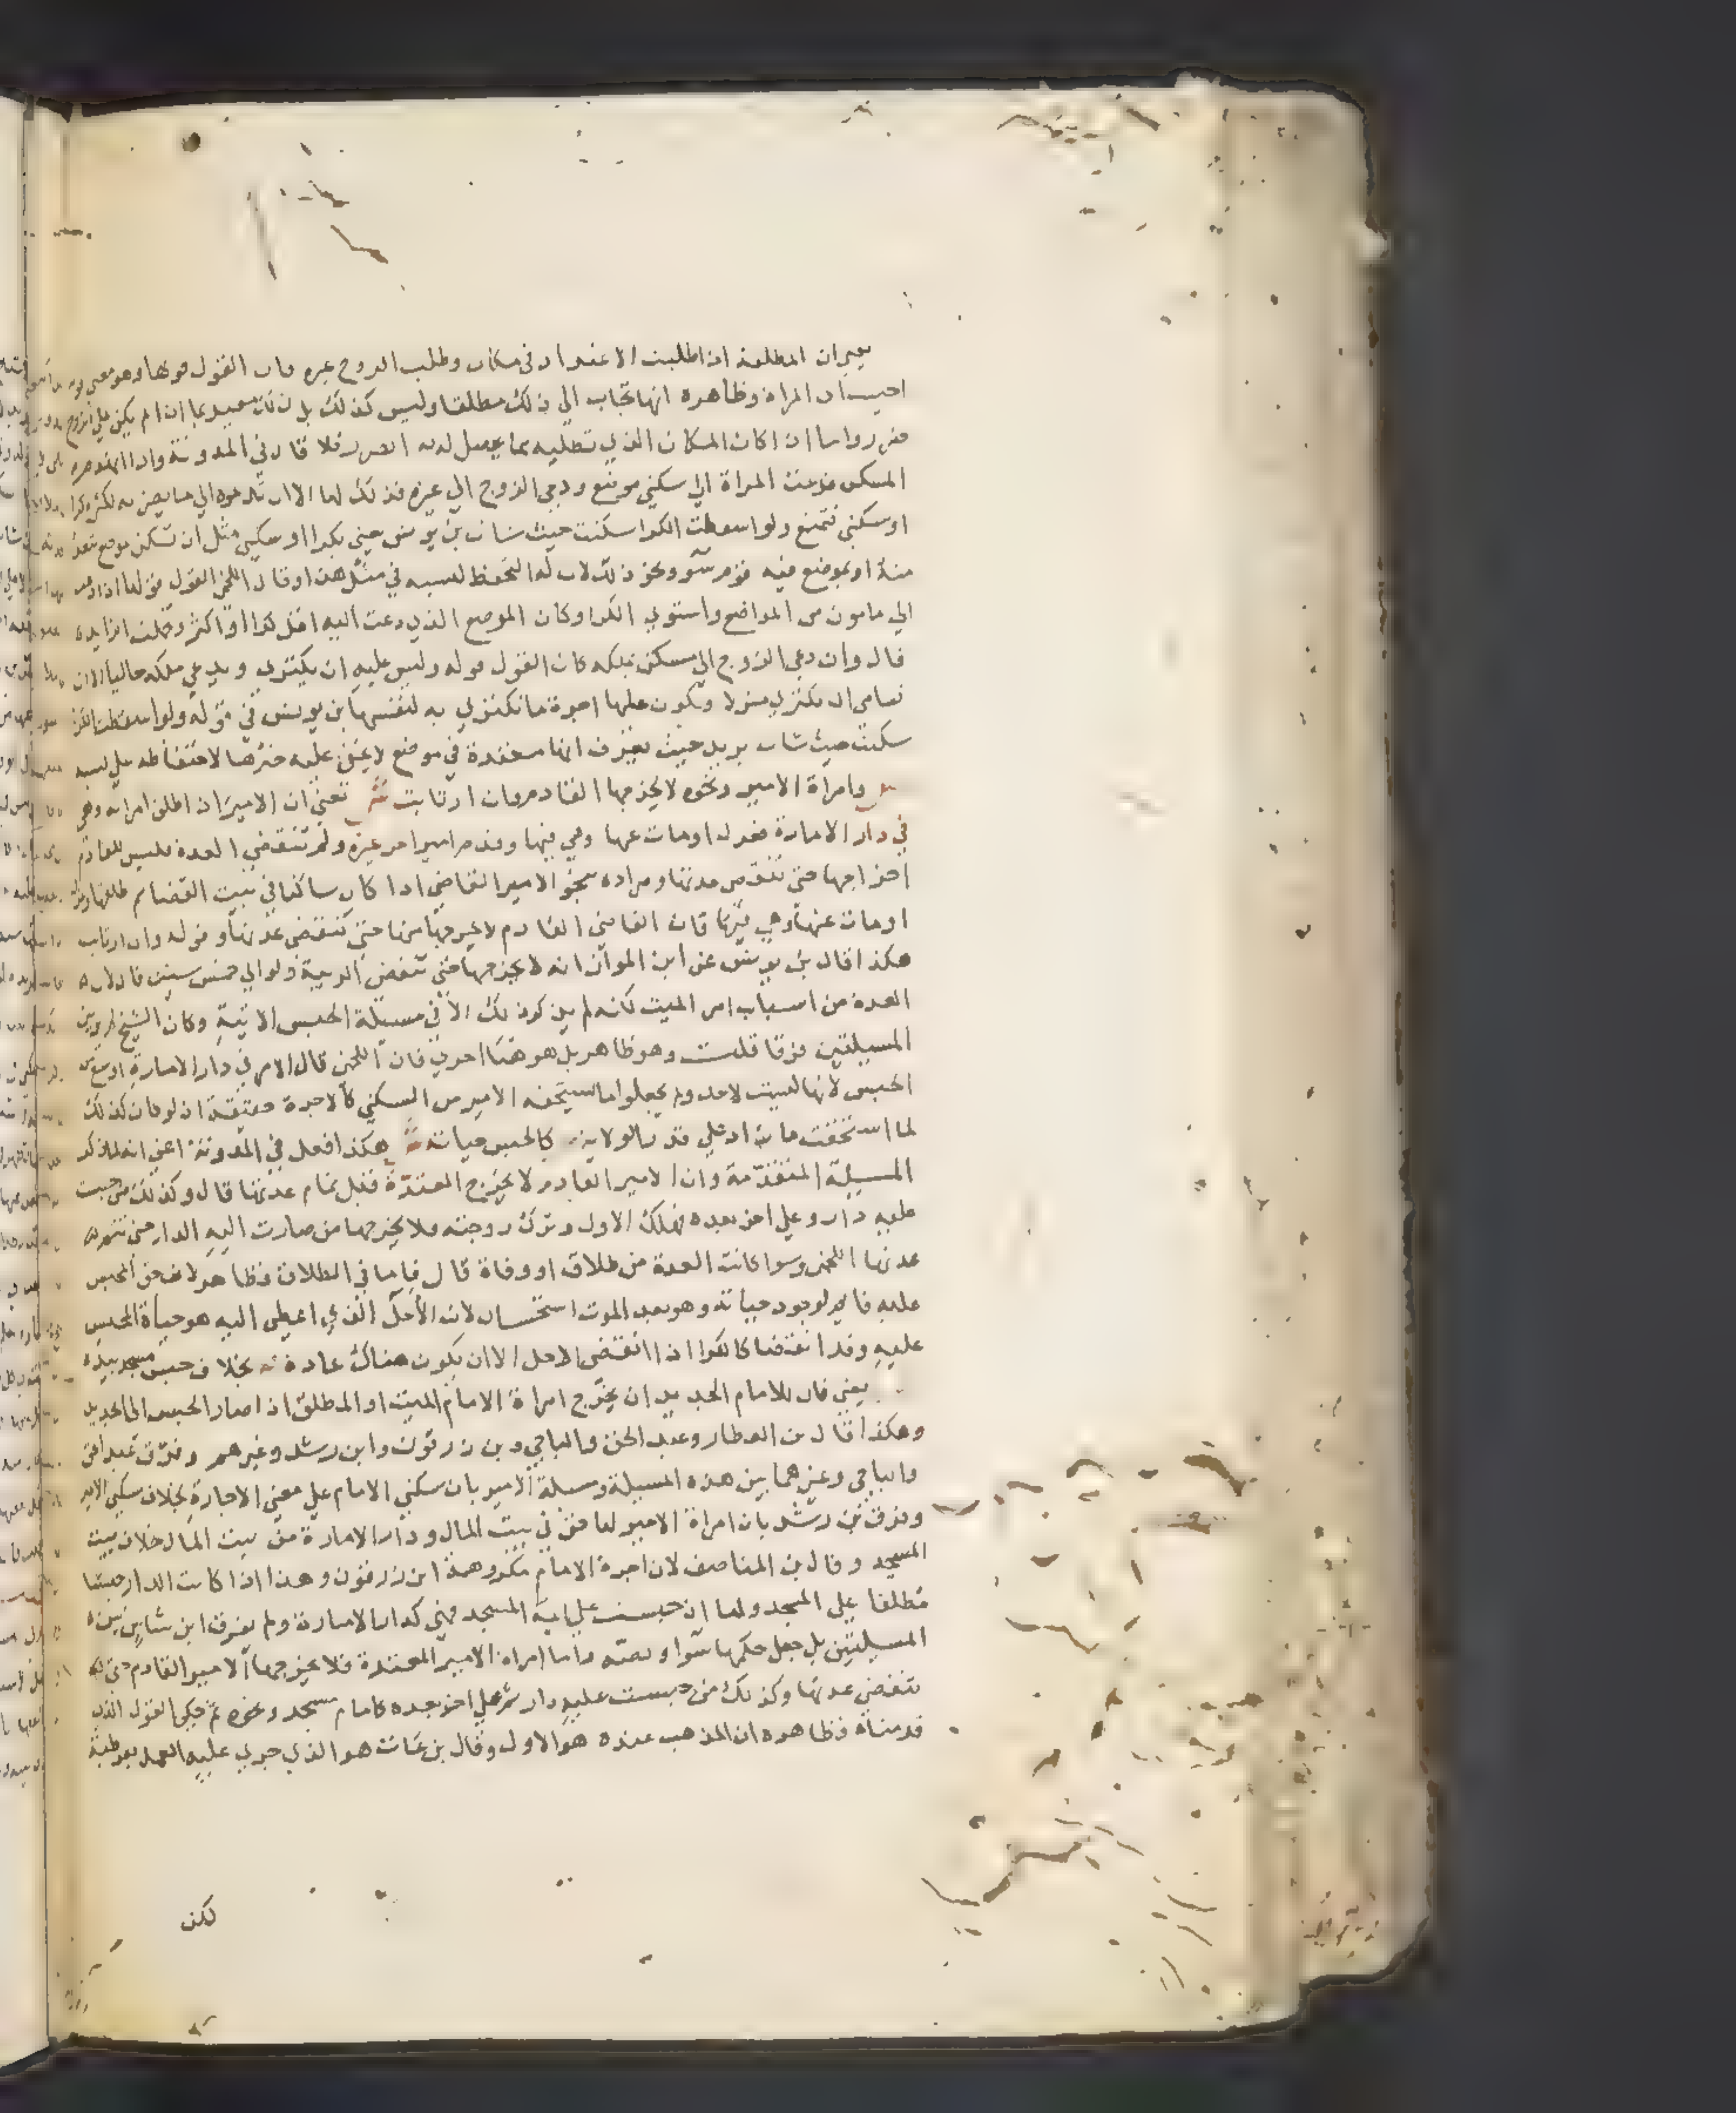 يعني ان المطلقة اذا طلبت الاعتداد في مكان وطلب الزوج غيره فان القول قولها وهو معنى قوله
المراة وظاهره انها تجاب الي ذلك مطلقا وليس كذلك بل ذلك مقيد بما اذا لم يكن علي الزوج
ضرر واما اذا كان المكان الذي تطلبه مما يحصل لديه الضرر فلا قال في المدونة واذا انهدم
المسكن فدعت المراة الي سكني موضع ودعي الزوج الي غيره فذلك لها الا ان تدعوه الي ما يضر به لكثرة كرا
او سكني فتمنع ولو اسقطت الكرا سكنت حيث شات بن يونس يعني بكرا او سكني مثل ان تسكن موضع
منه او بموضع فيه قوم سو ونحو ذلك لان له التحفظ لنسبه في مثل هذا وقال اللخمي القول قولها اذا دعت
الي مامون من المواضع واستوي الكرا وكان الموضع الذي دعت اليه اقل كرا او اكثر وتحملت الزايد
قال وان دعي الزوج الي مسكن يملكه كان القول قوله وليس عليه ان يكتري ويدعي ملكه خاليا الا ان
ترضي ان تكتري منزلا ويكون عليها اجرة ما تكتري به لنفسها بن يونس في قوله ولو اسقطت الكرا
سكنت حيث شات يريد حيث يعرف انها معتدة في موضع لا يخفي عليه خبرها لاحتفاظه علي نسبه
وامراة الامير ونحوه لا يخرجها القادم وان ارتابت يعني ان الامير اذا طلق امراته وهي
في دار الامارة فعزل او مات عنها وهي فيها وقدم امير اخر غيره ولم تنقضي العدة فليس للقادم
اخراجها حتي تنقض عدتها ومراده بنحو الامير القاضي اذا كان ساكنا في بيت القضا ثم طلقها وعزل
او مات عنها وهي فيها فان القاضي القادم لا يخرجها منها حتي تنقضي عدتها وقوله وان ارتابت
هكذا قال بن يونس عن ابن المواز انه لا يخرجها حتي تنقض الريبة ولو الي خمس سنين قال لان
العدة من اسباب امر الميت لكنه لم يذكر ذلك الا في مسيلة الحبس الاتية وكان الشيخ لم ير بين
المسيلتين فرقا قلت وهو ظاهر بل هو هنا احري فان اللخمي قال الامر في دار الامارة اوسع من
الحبس لانها ليست لاحد ولم يجعلوا ما يستحقه الامير من السكني كالاجرة حقيقة اذ لو كان كذلك
لما استحقت ما زاد علي قدر الولاية كالحبس حياته هكذا فعل في المدونة اعني انه لما ذكر
المسيلة المتقدمة وان الامير القادم لا يخرج المعتدة قبل تمام عدتها قال وكذلك من حبست
عليه دار وعلي اخر بعده فهلك الاول وترك زوجته فلا يخرجها من صارت اليه الدار حتي تتم
عدتها اللخمي وسوا كانت العدة من طلاق او وفاة قال فاما في الطلاق فظاهر لان حق المحبس
عليه قايم لوجود حياته وهو بعد الموت استحسان لان الاجل الذي اعطي اليه هو حياة المحبس
عليه وقد انقضا كالكرا اذا انقضي الاجل الا ان يكون هناك عادة بخلاف حبس مسجد بيده
يعني فان للامام الجديد ان يخرج امراة الامام الميت او المطلق اذا صار الحبس الي الجديد
وهكذا قال بن العطار وعبد الحق والباجي وبن زرقون وابن رشد وغيرهم وفرق عبد الحق
والباجي وغيرهما بين هذه المسيلة ومسيلة الامير بان سكني الامام علي معني الاجارة بخلاف سكني الامير
وفرق بن رشد بان امراة الامير لها حق في بيت المال ودار الامارة من بيت المال خلاف بيت
المسجد وقال بن المناصف لان اجرة الامام مكروهة ابن زرقون وهذا اذا كانت الدار حبسا
مطلقا علي المسجد واما ان حبست علي ايمة المسجد فهي كدار الامارة ولم يفرق ابن شاس بين
المسيلتين بل جعل حكمها سوا ونصه واما امراة الامير المعتدة فلا يخرجها الامير القادم حتي
تنقضي عدتها وكذلك من حبست عليه دار ثم علي اخر بعده كامام مسجد ونحوه ثم حكي القول الذي
قدمناه فظاهره ان المذهب عنده هو الاول وقال بن عات هو الذي جري عليه العمل بقرطبة
لكن